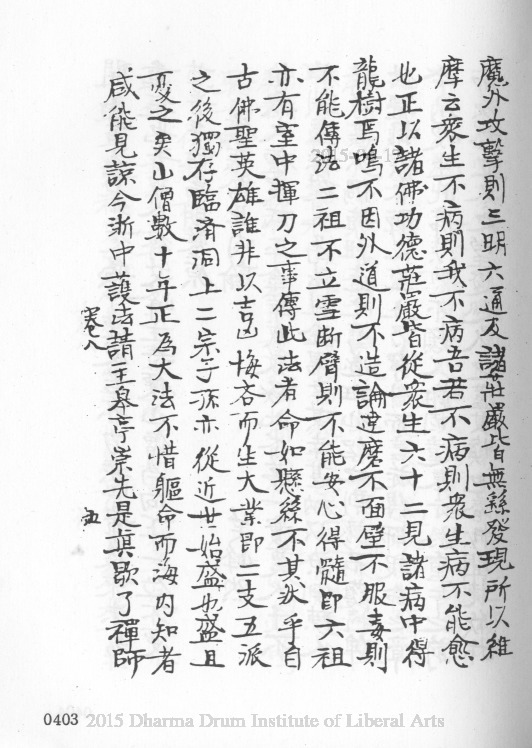 魔外攻擊則三明六通及諸莊嚴皆無繇發現所以維
摩云衆生不病則我不病吾若不病則衆生病不能愈
也正以諸佛功德莊嚴皆從衆生六十二見諸病中得
龍樹馬鳴不因外道則不造論達磨不面壁不服毒則
不能傳法二祖不立雪断臂則不能安心得髓即六祖
亦有室中揮刀之事傳此法者命如懸絲不其然乎自
古佛聖英雄誰非以吉凶悔吝而生大業即二支五派
之後獨存臨濟洞上二宗子孫亦從近世始盛也盛且
変之矣山僧數十年正為大法不惜軀命而海内知者
咸能見諒今浙中護法請主皋亭崇先是真歇了禪師
卷八
五
0403 2015 Dharma Drum Institute of Liberal Arts